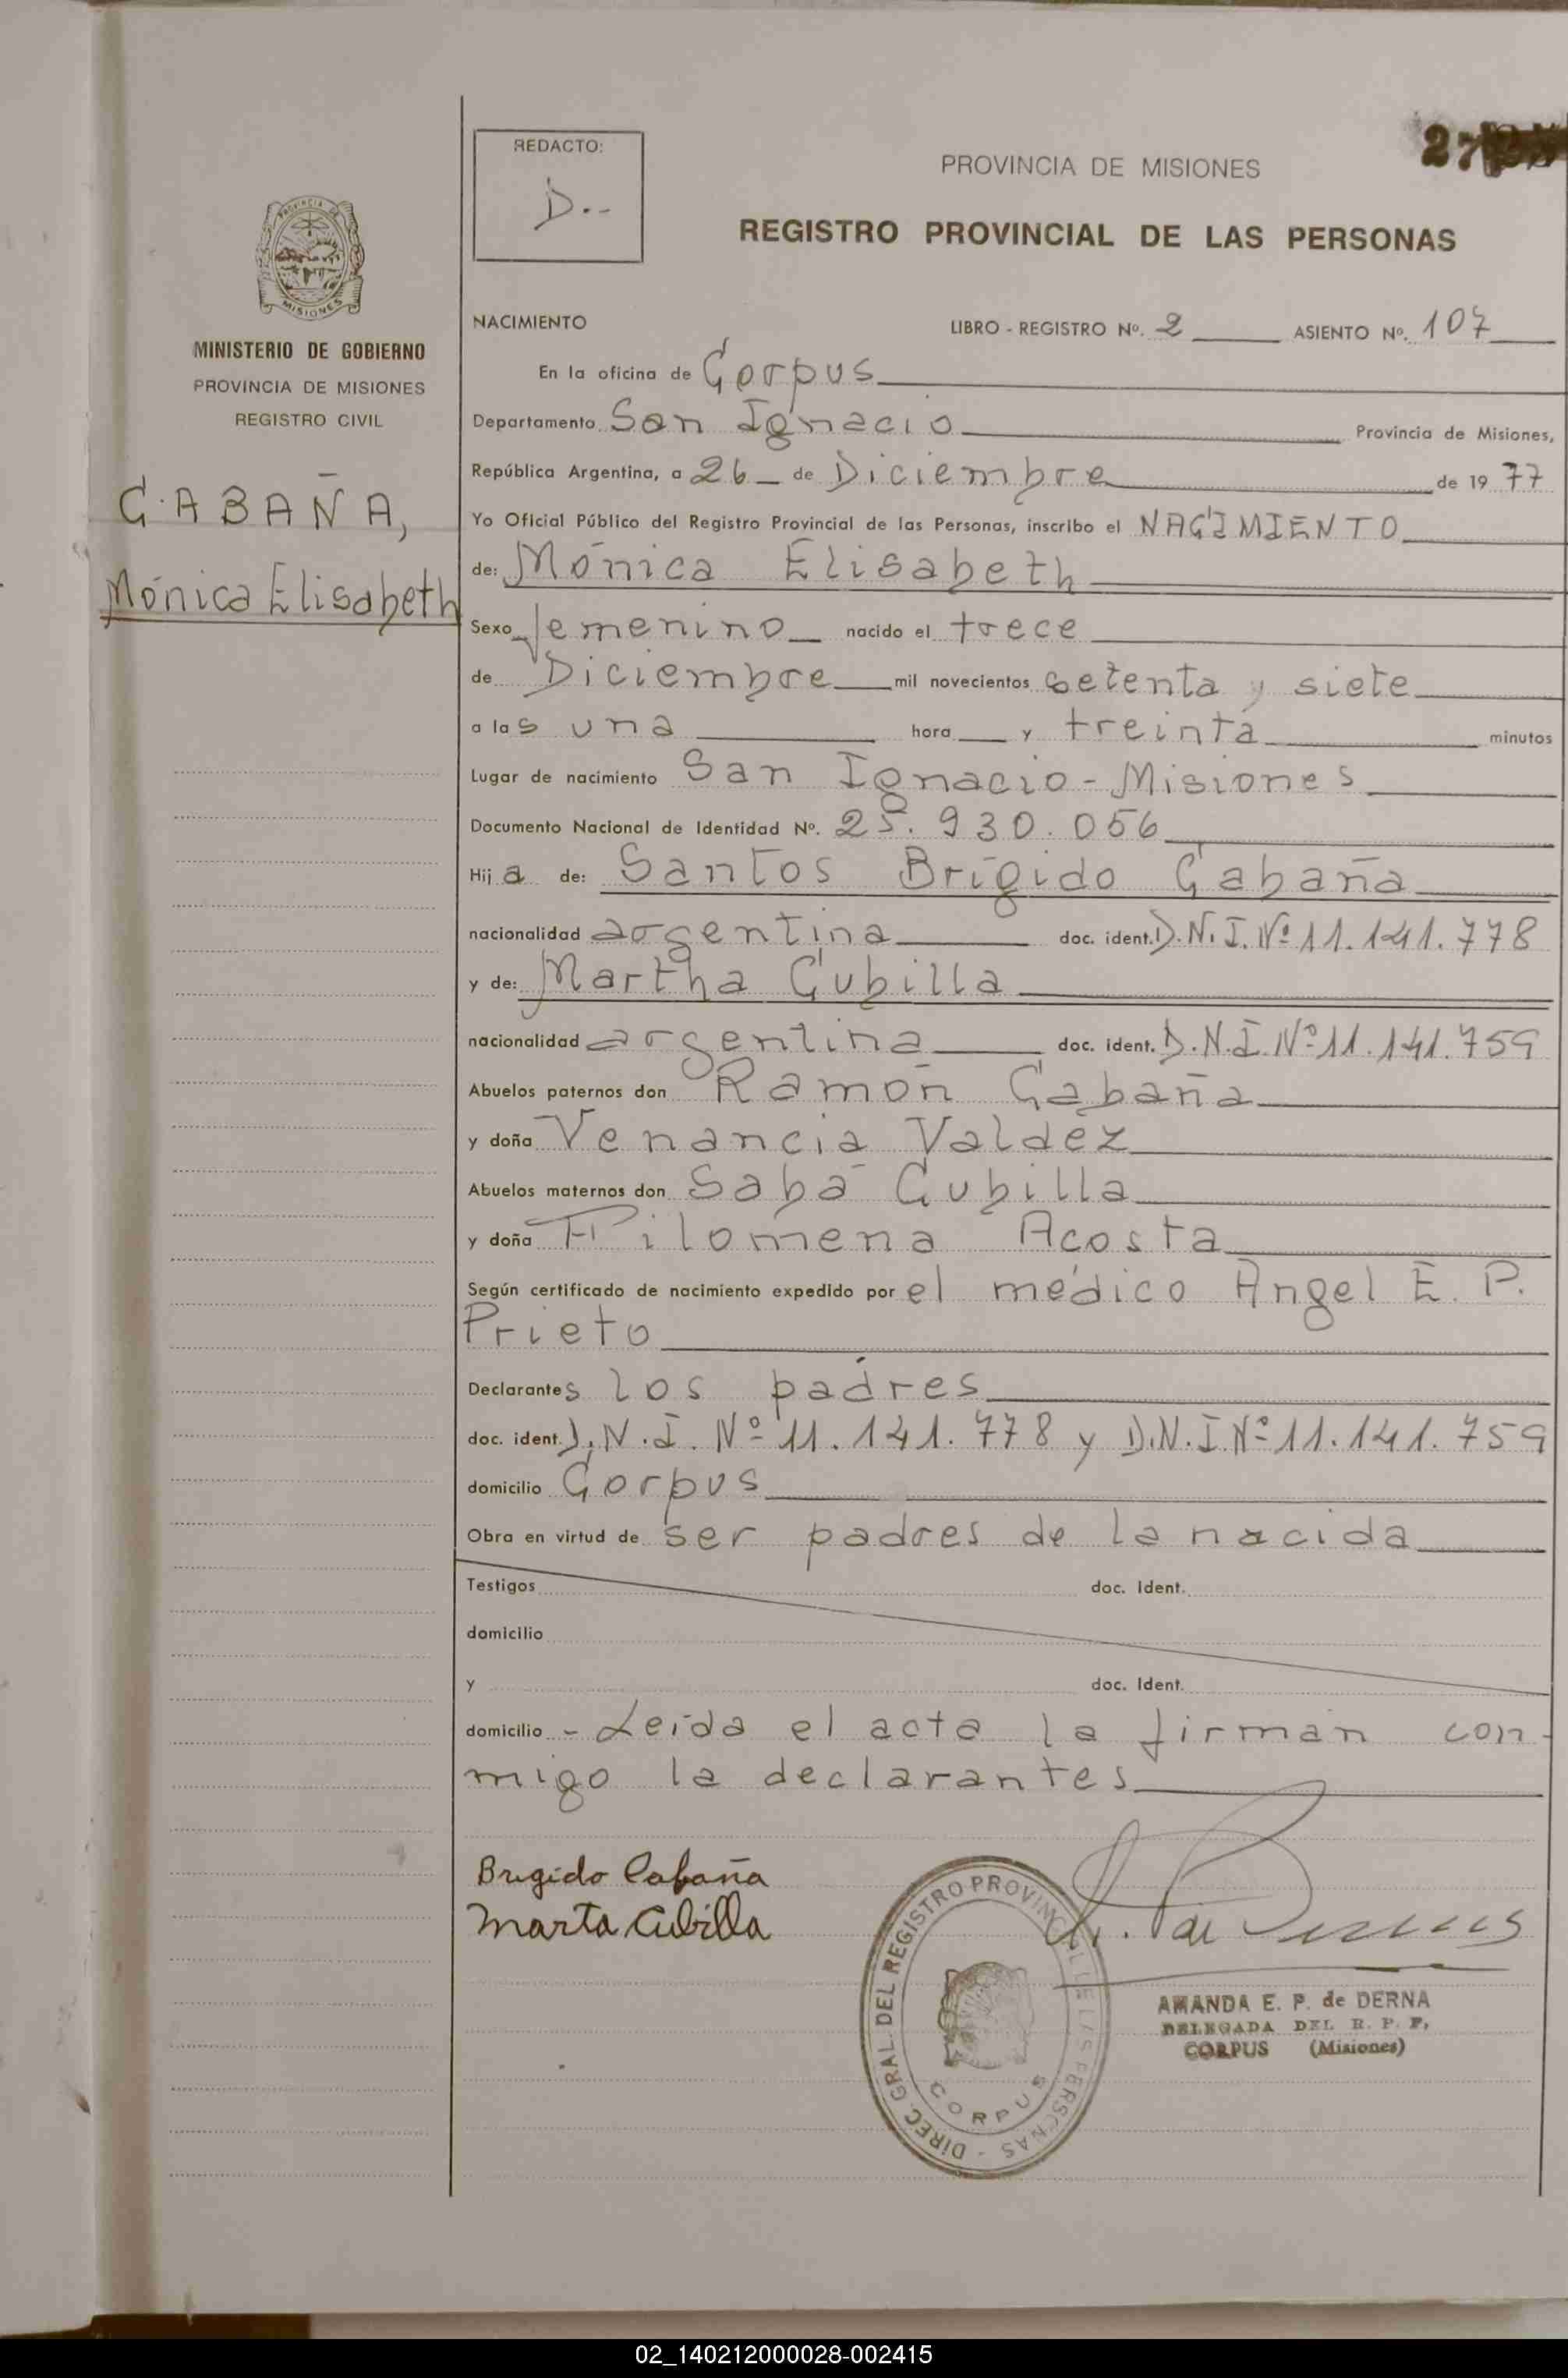 REDACTO:
D..-
PROVINCIA DE MISIONES
REGISTRO PROVINCIAL DE LAS PERSONAS
PROVINCIA DE
MISIONES
MINISTERIO DE GOBIERNO
PROVINCIA DE MISIONES
REGISTRO CIVIL
CABAÑA,
Mónica Elisabeth
NACIMIENTO LIBRO - REGISTRO Nº. 2 ASIENTO Nº. 107
En la oficina de Corpus
Departamento San Ignacio Provincia de Misiones,
República Argentina, a 26 de Diciembre de 19 77
Yo Oficial Público del Registro Provincial de las Personas, inscribo el NACIMIENTO
de: Mónica Elisabeth
Sexo femenino nacido el trece
de Diciembre mil novecientos setenta y siete
a las una hora y treinta minutos
Lugar de nacimiento San Ignacio - Misiones
Documento Nacional de Identidad Nº. 25.930.056
Hija de: Santos Brígido Cabaña
nacionalidad argentina doc. ident. D.N.I. Nº 11.141.778
y de: Martha Cubilla
nacionalidad argentina doc. ident. D.N.I. Nº 11.141.759
Abuelos paternos don Ramón Cabaña
y doña Venancia Valdez
Abuelos maternos don Sabá Cubilla
y doña Filomena Acosta
Según certificado de nacimiento expedido por el médico Angel E. P.
Prieto
Declarantes los padres
doc. ident. D.N.I. Nº 11.141.778 y D.N.I. Nº 11.141.759
domicilio Corpus
Obra en virtud de ser padres de la nacida
Testigos doc. Ident.
domicilio
y doc. Ident.
domicilio - Leída el acta la firman con-
migo la declarantes
Brigido Cabaña
Marta Cubilla
DIREC. GRAL. DEL REGISTRO PROVINCIAL DE LAS PERSONAS -
CORPUS
AMANDA E. P. de DERNA
DELEGADA DEL R. P. P,
CORPUS (Misiones)
02_140212000028-002415